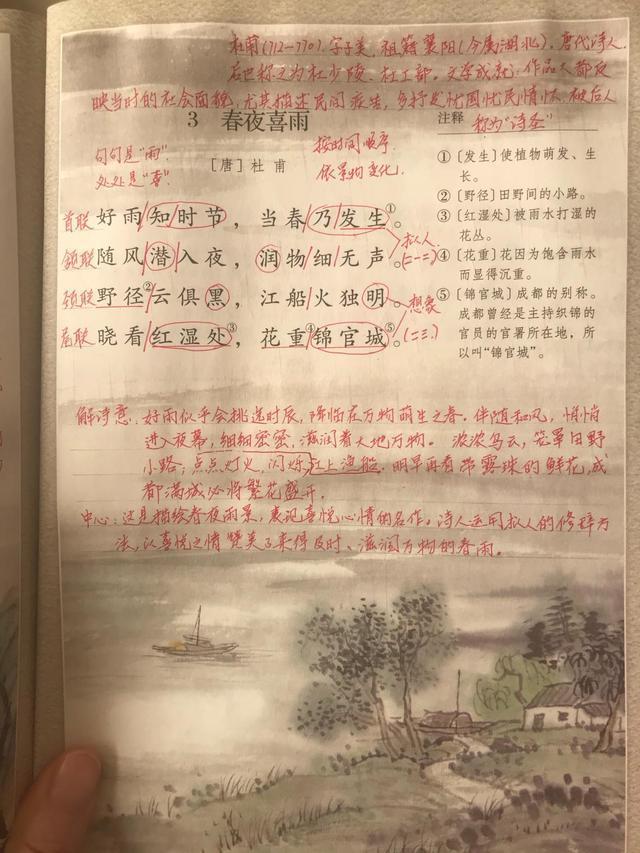 杜甫(712-770).字子美,祖籍襄阳(今属湖北).唐代诗人.
后世称之为杜少陵、杜工部。文学成就:作品大都反
映当时的社会面貌,尤其描述民间疾苦,多抒发忧国忧民情怀.被后人
称为"诗圣"
3 春夜喜雨
句句是"雨"
处处是"喜"
[唐] 杜 甫
按时间顺序.
依景物变化.
首联 好雨/知/时节,当春/乃/发生①。
颔联 随风/潜/入夜,润物/细/无声。
拟人.
(二一二)
颈联 野径②/云俱/黑,江船/火独/明。
尾联 晓看/红湿处③,花重④/锦官城⑤。
想象
(二三.)
注释
①〔发生〕使植物萌发、生
长。
②〔野径〕田野间的小路。
③〔红湿处〕被雨水打湿的
花丛。
④〔花重〕花因为饱含雨水
而显得沉重。
⑤〔锦官城〕成都的别称。
成都曾经是主持织锦的
官员的官署所在地,所
以叫“锦官城”。
解诗意:好雨似乎会挑选时辰,降临在万物萌生之春。伴随和风,悄悄
进入夜幕,细细密密,滋润着大地万物。浓浓乌云,笼罩田野
小路;点点灯火,闪烁江上渔船.明早再看带露珠的鲜花,成
都满城必将繁花盛开.
中心:这是描绘春夜雨景,表现喜悦心情的名作。诗人运用拟人的修辞方
法,以喜悦之情赞美了来得及时、滋润万物的春雨。